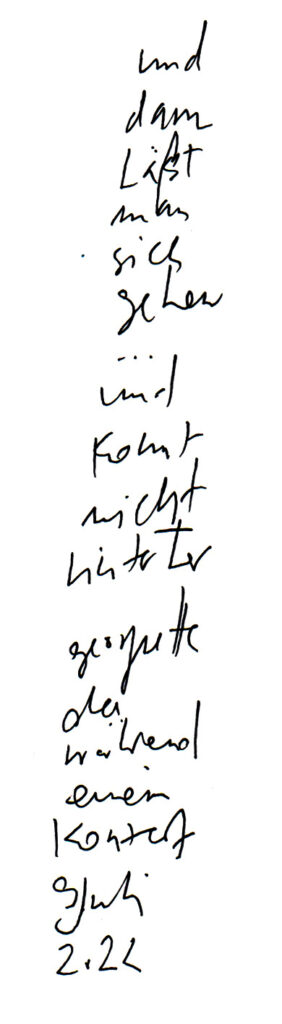 und
dann
Läßt
man
sich
gehen
...
und
Kommt
nicht
hinter
der
während
einem
Konzert
9 Juli
2.22